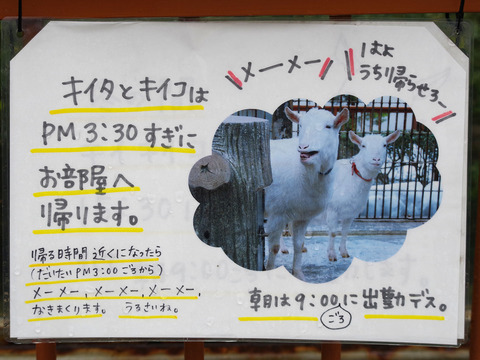 キイタとキイコは
PM 3:30 すぎに
お部屋へ
帰ります。
帰る時間 近くになったら
(だいたいPM3:00 ごろから)
メーメー、メーメー、メーメー、
なきまくります。 うるさいね。
メーメー
はよ
うち帰らせろー
朝は9:00に出勤デス。
ごろ